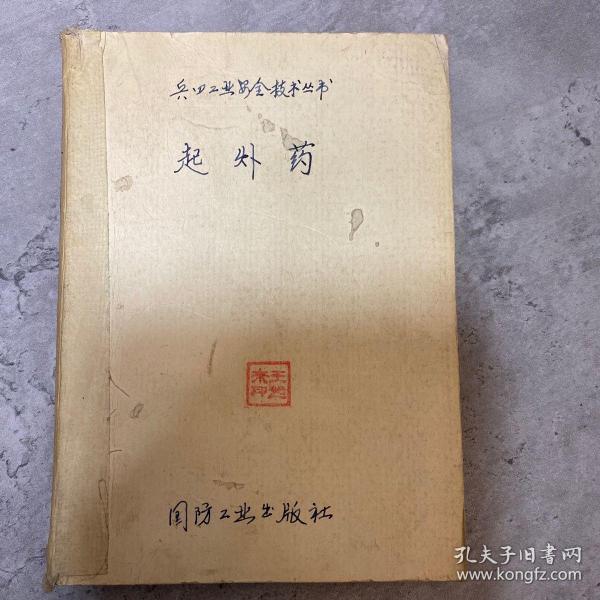 兵四工业安全技术丛书
起炸药
国防工业出版社
孔夫子旧书网
www.kongfz.com